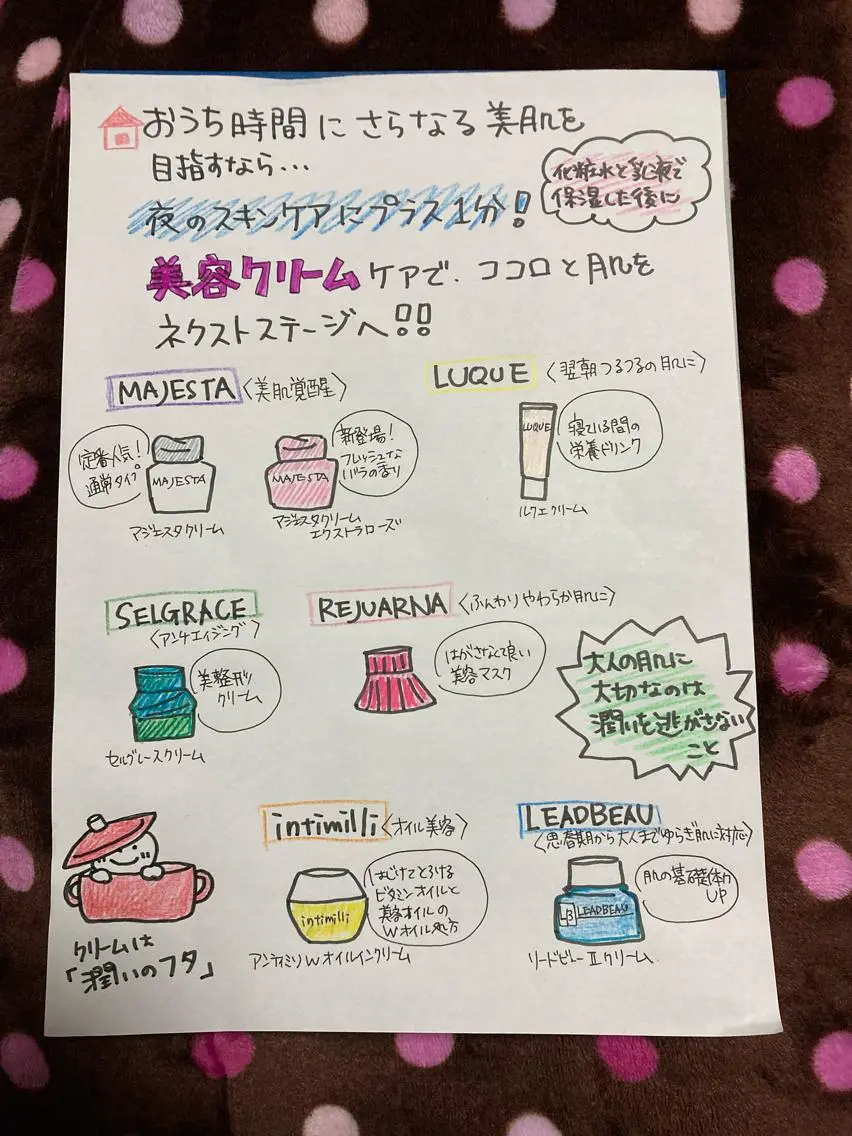 おうち時間にさらなる美肌を
目指すなら...
化粧水と乳液で
保湿した後に
夜のスキンケアにプラス1分!
美容クリームケアで、ココロと肌を
ネクストステージへ!!
MAJESTA〈美肌覚醒〉
定番人気!
通常タイプ
MAJESTA
マジェスタクリーム
新登場!
フレッシュな
バラの香り
MAJESTA
マジェスタクリーム
エクストラローズ
LUQUE〈翌朝つるつるの肌に〉
LUQUE
寝ている間の
栄養ドリンク
ルクエクリーム
SELGRACE
〈アンチエイジング〉
美整形
クリーム
セルグレースクリーム
REJUARNA〈ふんわりやわらか肌に〉
はがさなくて良い
美容マスク
大人の肌に
大切なのは
潤いを逃がさない
こと
クリームは
「潤いのフタ」
intimilli〈オイル美容〉
intimilli
はじけてとろける
ビタミンオイルと
美容オイルの
Wオイル処方
アンティミリWオイルインクリーム
LEADBEAU
〈思春期から大人までゆらぎ肌に対応〉
LB LEADBEAU
肌の基礎体力
UP
リードビューⅡクリーム